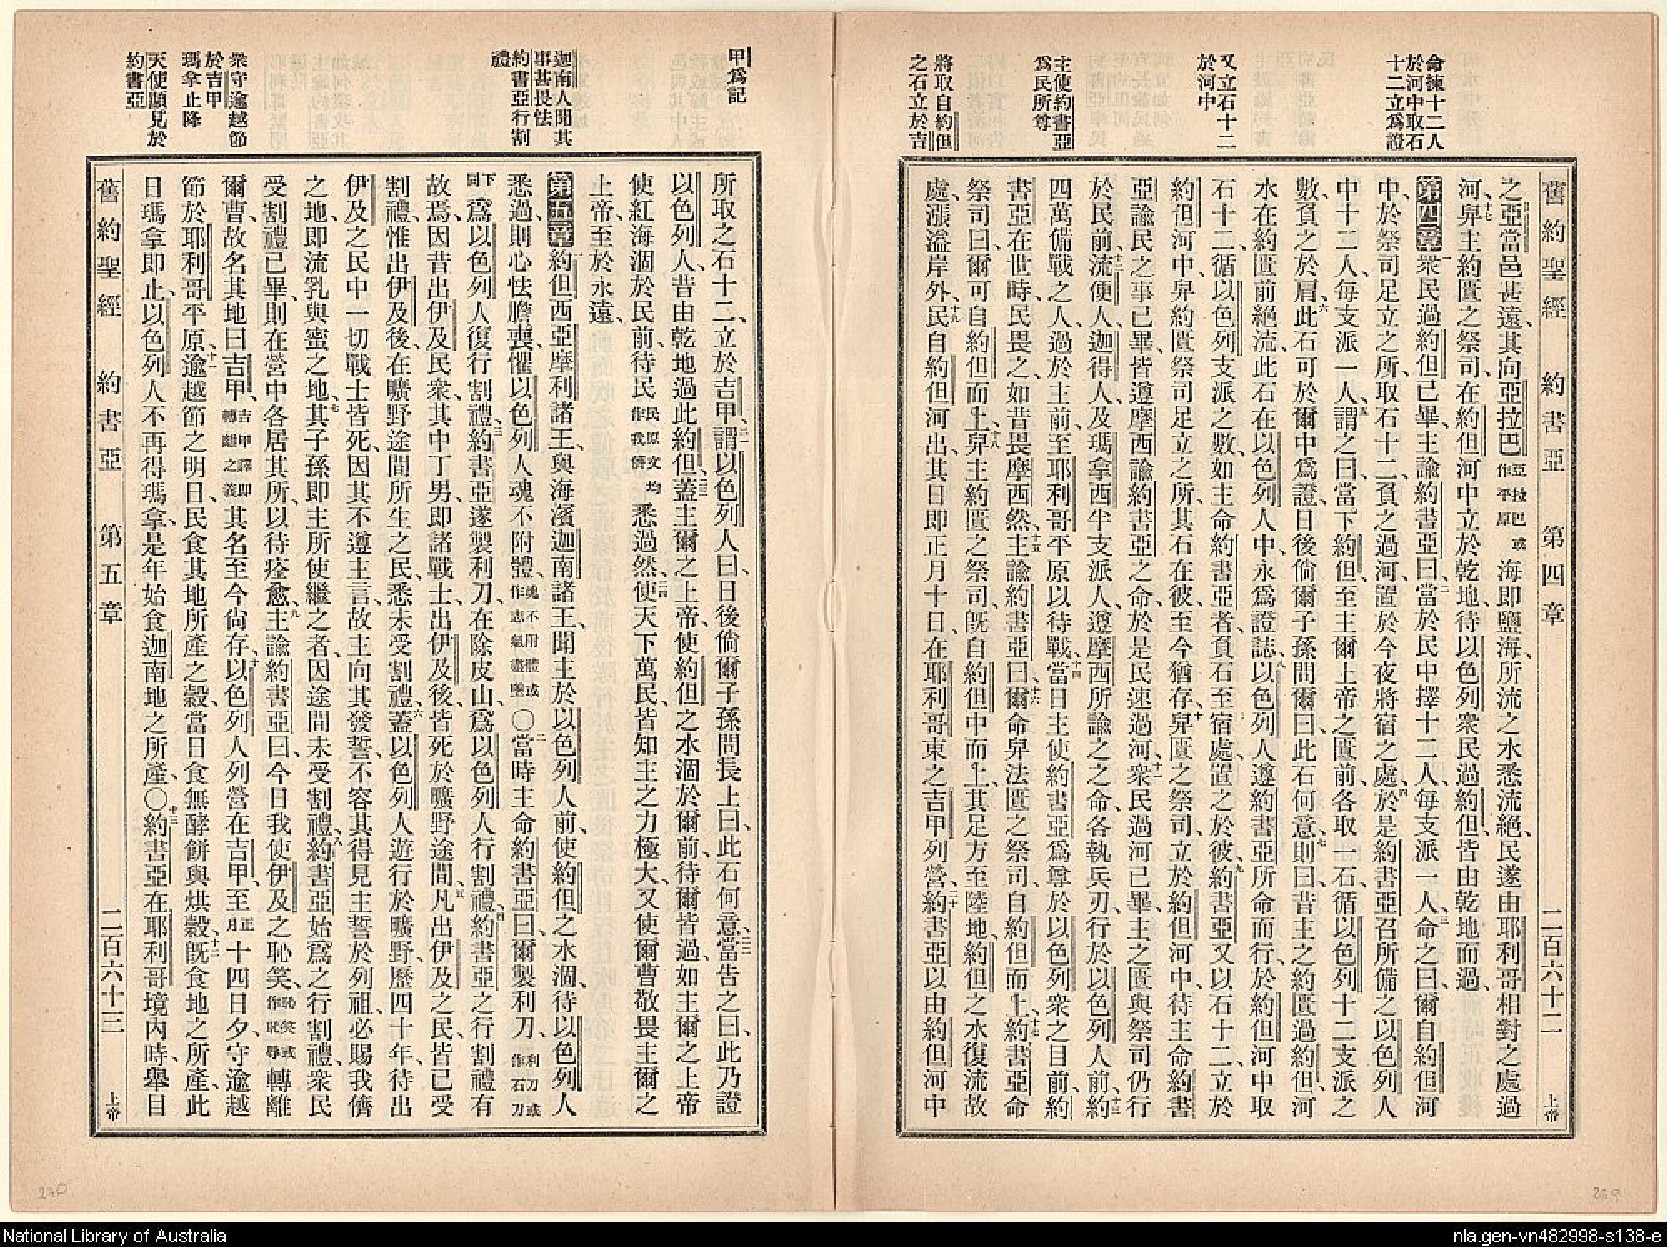 舊約聖經 約書亞 第四章 二百六十二 上帝
命揀十二人
於河中取石
十二立爲證
又立石十二
於河中
主使約書亞
爲民所尊
將取自約但
之石立於吉
之亞當邑甚遠、其向亞拉巴亞拉巴或作平原海即鹽海、所流之水悉流絕、民遂由耶利哥相對之處過
河、十七舁主約匱之祭司在約但河中立於乾地、待以色列衆民過約但、皆由乾地而過、
第四章一衆民過約但已畢、主諭約書亞曰、二當於民中擇十二人、每支派一人、三命之曰、爾自約但河
中、於祭司足立之所、取石十二、負之過河、置於今夜將宿之處、四於是約書亞召所備之以色列人
中十二人、每支派一人、五謂之曰、當下約但、至主爾上帝之匱前、各取一石、循以色列十二支派之
數、負之於肩、六此石可於爾中爲證、日後倘爾子孫問爾曰、此石何意、七則曰、昔主之約匱過約但、河
水在約匱前絕流、此石在以色列人中、永爲證誌、八以色列人遵約書亞所命而行、於約但河中取
石十二、循以色列支派之數、如主命約書亞者、負石至宿處、置之於彼、九約書亞又以石十二、立於
約但河中、舁約匱祭司足立之所、其石在彼、至今猶存、十舁匱之祭司、立於約但河中、待主命約書
亞諭民之事已畢、皆遵摩西諭約書亞之命、於是民速過河、十一衆民過河已畢、主之匱與祭司仍行
於民前、十二流便人、迦得人、及瑪拿西半支派人、遵摩西所諭之之命、各執兵刃、行於以色列人前、十三約
四萬備戰之人、過於主前、至耶利哥平原以待戰、十四當日主使約書亞爲尊於以色列衆之目前、約
書亞在世時、民畏之如昔畏摩西然、十五主諭約書亞曰、十六爾命舁法匱之祭司、自約但而上、十七約書亞命
祭司曰、爾可自約但而上、十八舁主約匱之祭司、既自約但中而上、其足方至陸地、約但之水復流故
處、漲溢岸外、十九民自約但河出其日、即正月十日、在耶利哥東之吉甲列營、二十約書亞以由約但河中
甲爲記
迦南人聞其
事甚畏怯
約書亞行割
禮
衆守逾越節
於吉甲
瑪拿止降
天使顯見於
約書亞
所取之石十二、立於吉甲、二一謂以色列人曰、日後倘爾子孫問長上曰、此石何意、二二當告之曰、此乃證
以色列人昔由乾地過此約但、二三蓋主爾之上帝、使約但之水涸於爾前、待爾皆過、如主爾之上帝
使紅海涸於民前、待民民原文均作我儕悉過然、二四使天下萬民、皆知主之力極大、又使爾曹敬畏主爾之
上帝、至於永遠、
第五章一約但西亞摩利諸王、與海濱迦南諸王、聞主於以色列人前、使約但之水涸、待以色列人
悉過、則心怯膽喪、懼以色列人魂不附體魂不附體或作志氣盡墮○二當時主命約書亞曰、爾製利刀、利刀或作石刀
下同爲以色列人復行割禮、三約書亞遂製利刀、在除皮山、爲以色列人行割禮、四約書亞之行割禮有
故焉、因昔出伊及民衆、其中丁男、即諸戰士、出伊及後、皆死於曠野途間、五凡出伊及之民、皆已受
割禮、惟出伊及後、在曠野途間所生之民、悉未受割禮、六蓋以色列人遊行於曠野、歷四十年、待出
伊及之民中一切戰士皆死、因其不遵主言、故主向其發誓、不容其得見主誓於列祖、必賜我儕
之地、即流乳與蜜之地、七其子孫即主所使繼之者、因途間未受割禮、約書亞始爲之行割禮、八衆民
受割禮已畢、則在營中各居其所、以待痊愈、九主諭約書亞曰、今日我使伊及之恥笑恥笑或作恥辱轉離
爾曹、故名其地曰吉甲、吉甲譯即轉離之義其名至今尚存、十以色列人列營在吉甲、至正月十四日夕、守逾越
節於耶利哥平原、十一逾越節之明日、民食其地所產之穀、當日食無酵餅與烘穀、十二既食地之所產、此
日瑪拿即止、以色列人不再得瑪拿、是年始食迦南地之所產、○十三約書亞在耶利哥境內時、舉目
舊約聖經 約書亞 第五章 二百六十三 上帝
National Library of Australia
nla.gen-vn482998-s138-e